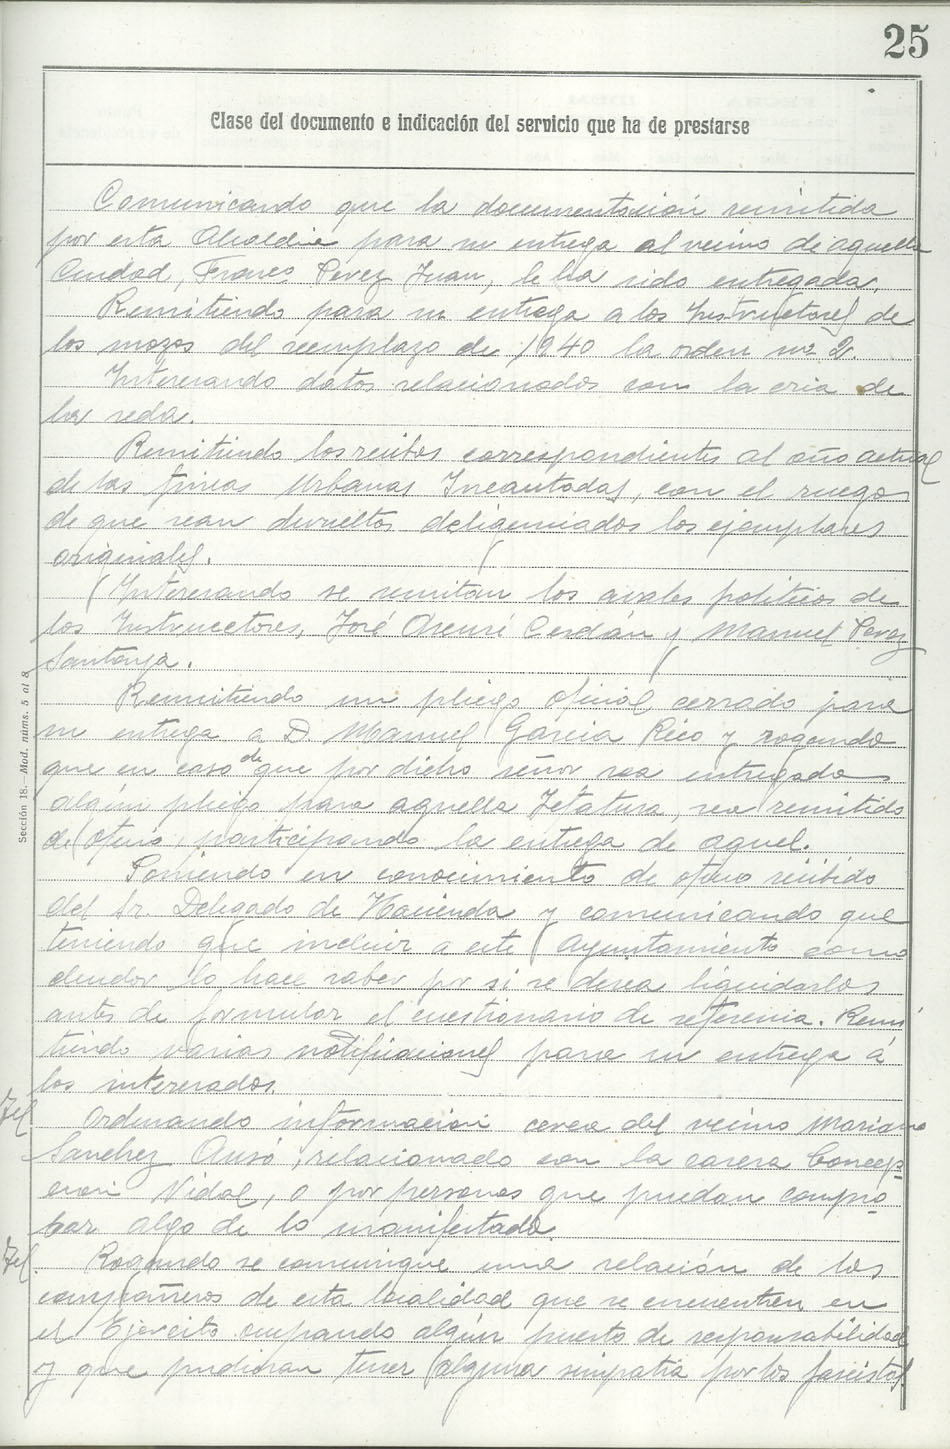 25
Clase del documento e indicación del servicio que ha de prestarse
Comunicando que la documentación remitida
por esta Alcaldia para su entrega al vecino de aquella
Ciudad, Franco Perez Juan, le ha sido entregada.
Remitiendo para su entrega a los Instructores de
los mozos del reemplazo de 1940 la orden nº 2.
Interesando datos relacionados con la cria de
la seda.
Remitiendo los recibos correspondientes al año actual
de las fincas Urbanas Incautadas, con el ruego
de que sean devueltos deligenciados los ejemplares
originales.
Interesando se remitan los avales politicos de
los Instructores, José Asensi Cerdán y Manuel Perez
Santonja.
Remitiendo un pliego oficial cerrado para
su entrega a D. Manuel Garcia Rico y rogando
que en caso de que por dicho señor sea entregado
algún pliego para aquella Jefatura, sea remitido
de oficio, participando la entrega de aquel.
Poniendo en conocimiento de oficio recibido
del Sr. Delegado de Hacienda y comunicando que
teniendo que incluir a este Ayuntamiento como
deudor lo hace saber por si se desea liquidarlos
antes de formular el cuestionario de referencia. Remi
tiendo varias notificaciones para su entrega á
los interesados.
Ordenando información cerca del vecino Mariano
Sanchez Ausó, relacionado con la casera Concep-
cion Vidal, o por personas que puedan compro-
bar algo de lo manifestado.
Rogando se comunique una relación de los
compañeros de esta localidad que se encuentren en
el Ejército ocupando algún puesto de responsabilidad
y que pudieran tener alguna simpatia por los fascistas.
Sección 18.—Mod. núms. 5 al 8